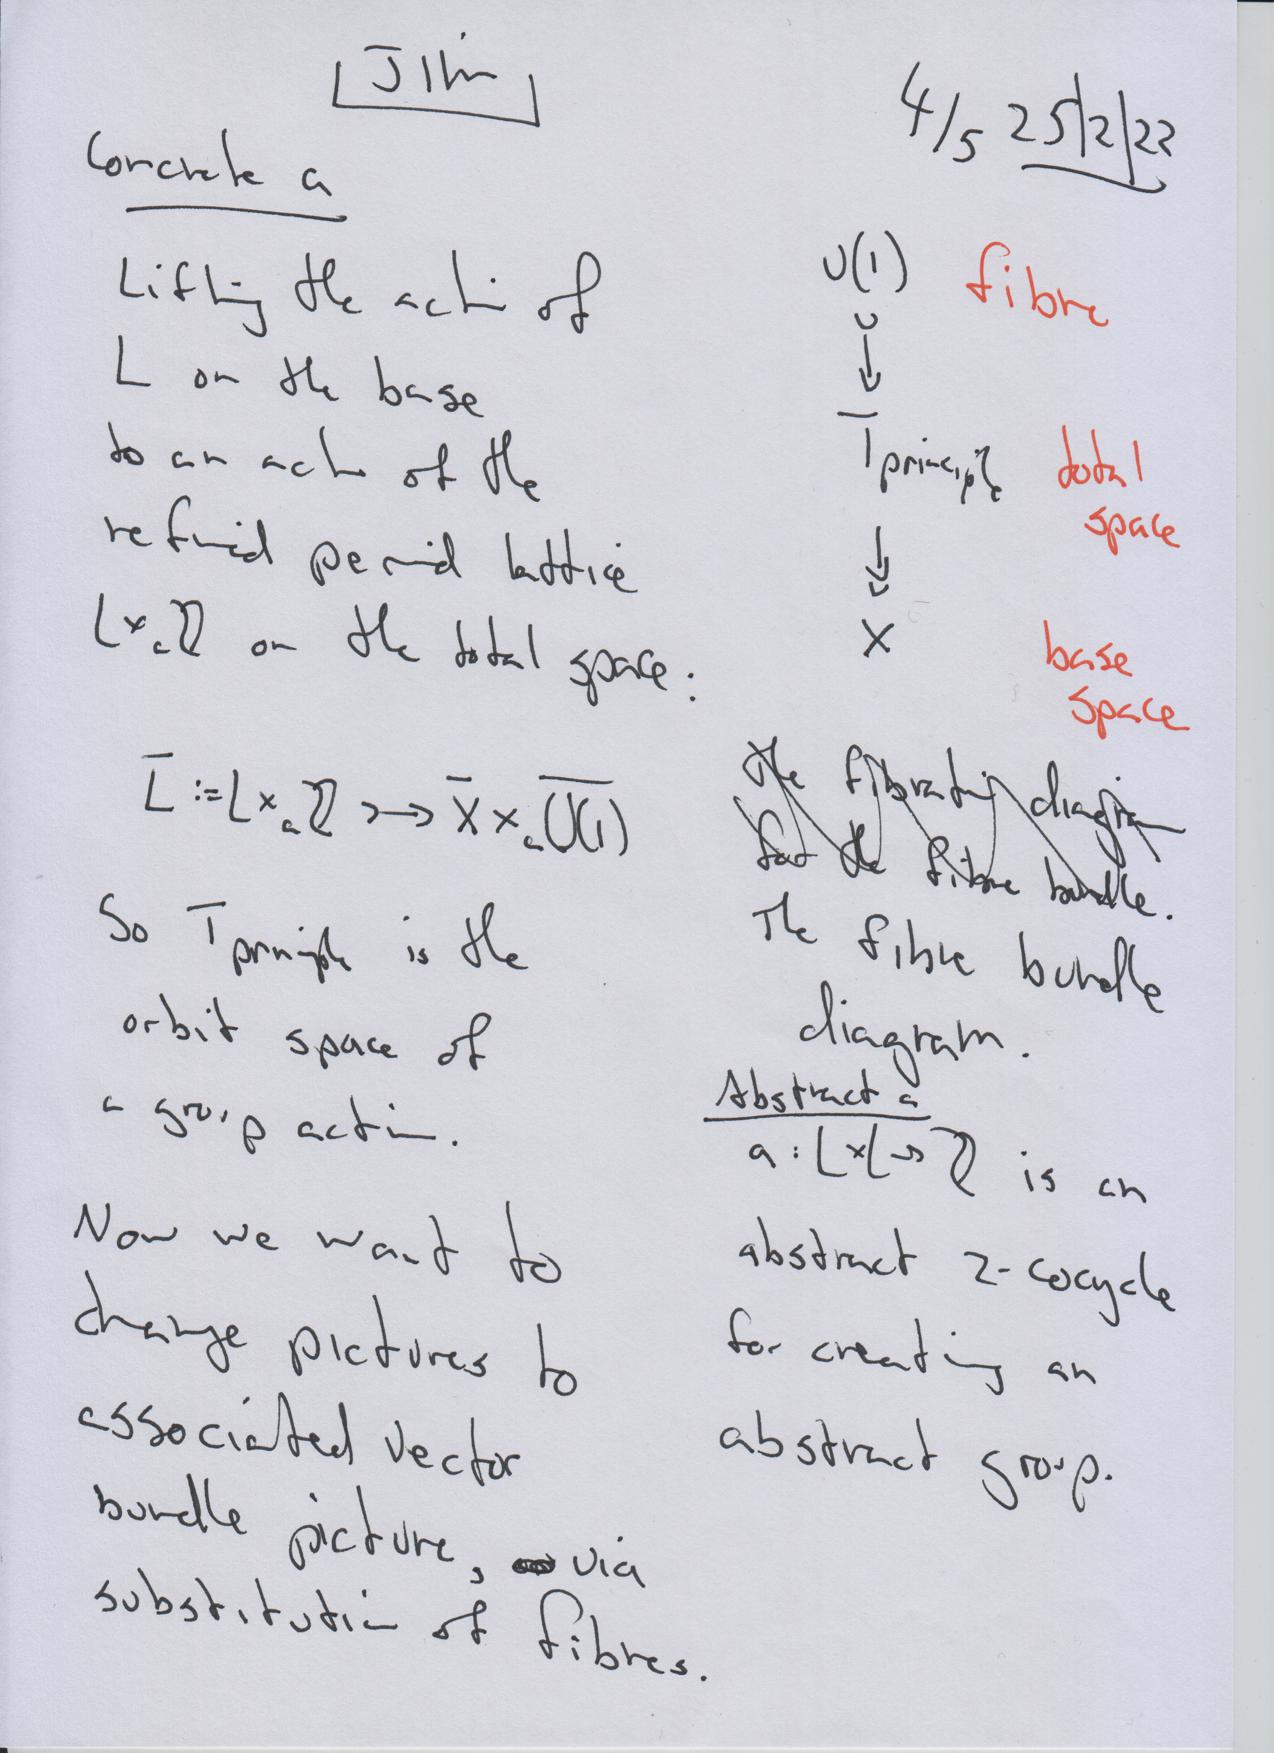 Jim
4/5 25/2/22
Concrete a
Lifting the action of
L on the base
to an action of the
refined period lattice
L×ₐℤ on the total space:
L̅ := L×ₐℤ ↣ X̅ ×ₐ U̅(1)
So T principle is the
orbit space of
a group action.
Now we want to
change pictures to
associated vector
bundle picture, via
substitution of fibres.
U(1) fibre
↓
T principle total
space
↓
X base
space
The fibrating diagram
for the fibre bundle.
The fibre bundle
diagram.
Abstract a
a : L×L → ℤ is an
abstract 2-cocycle
for creating an
abstract group.